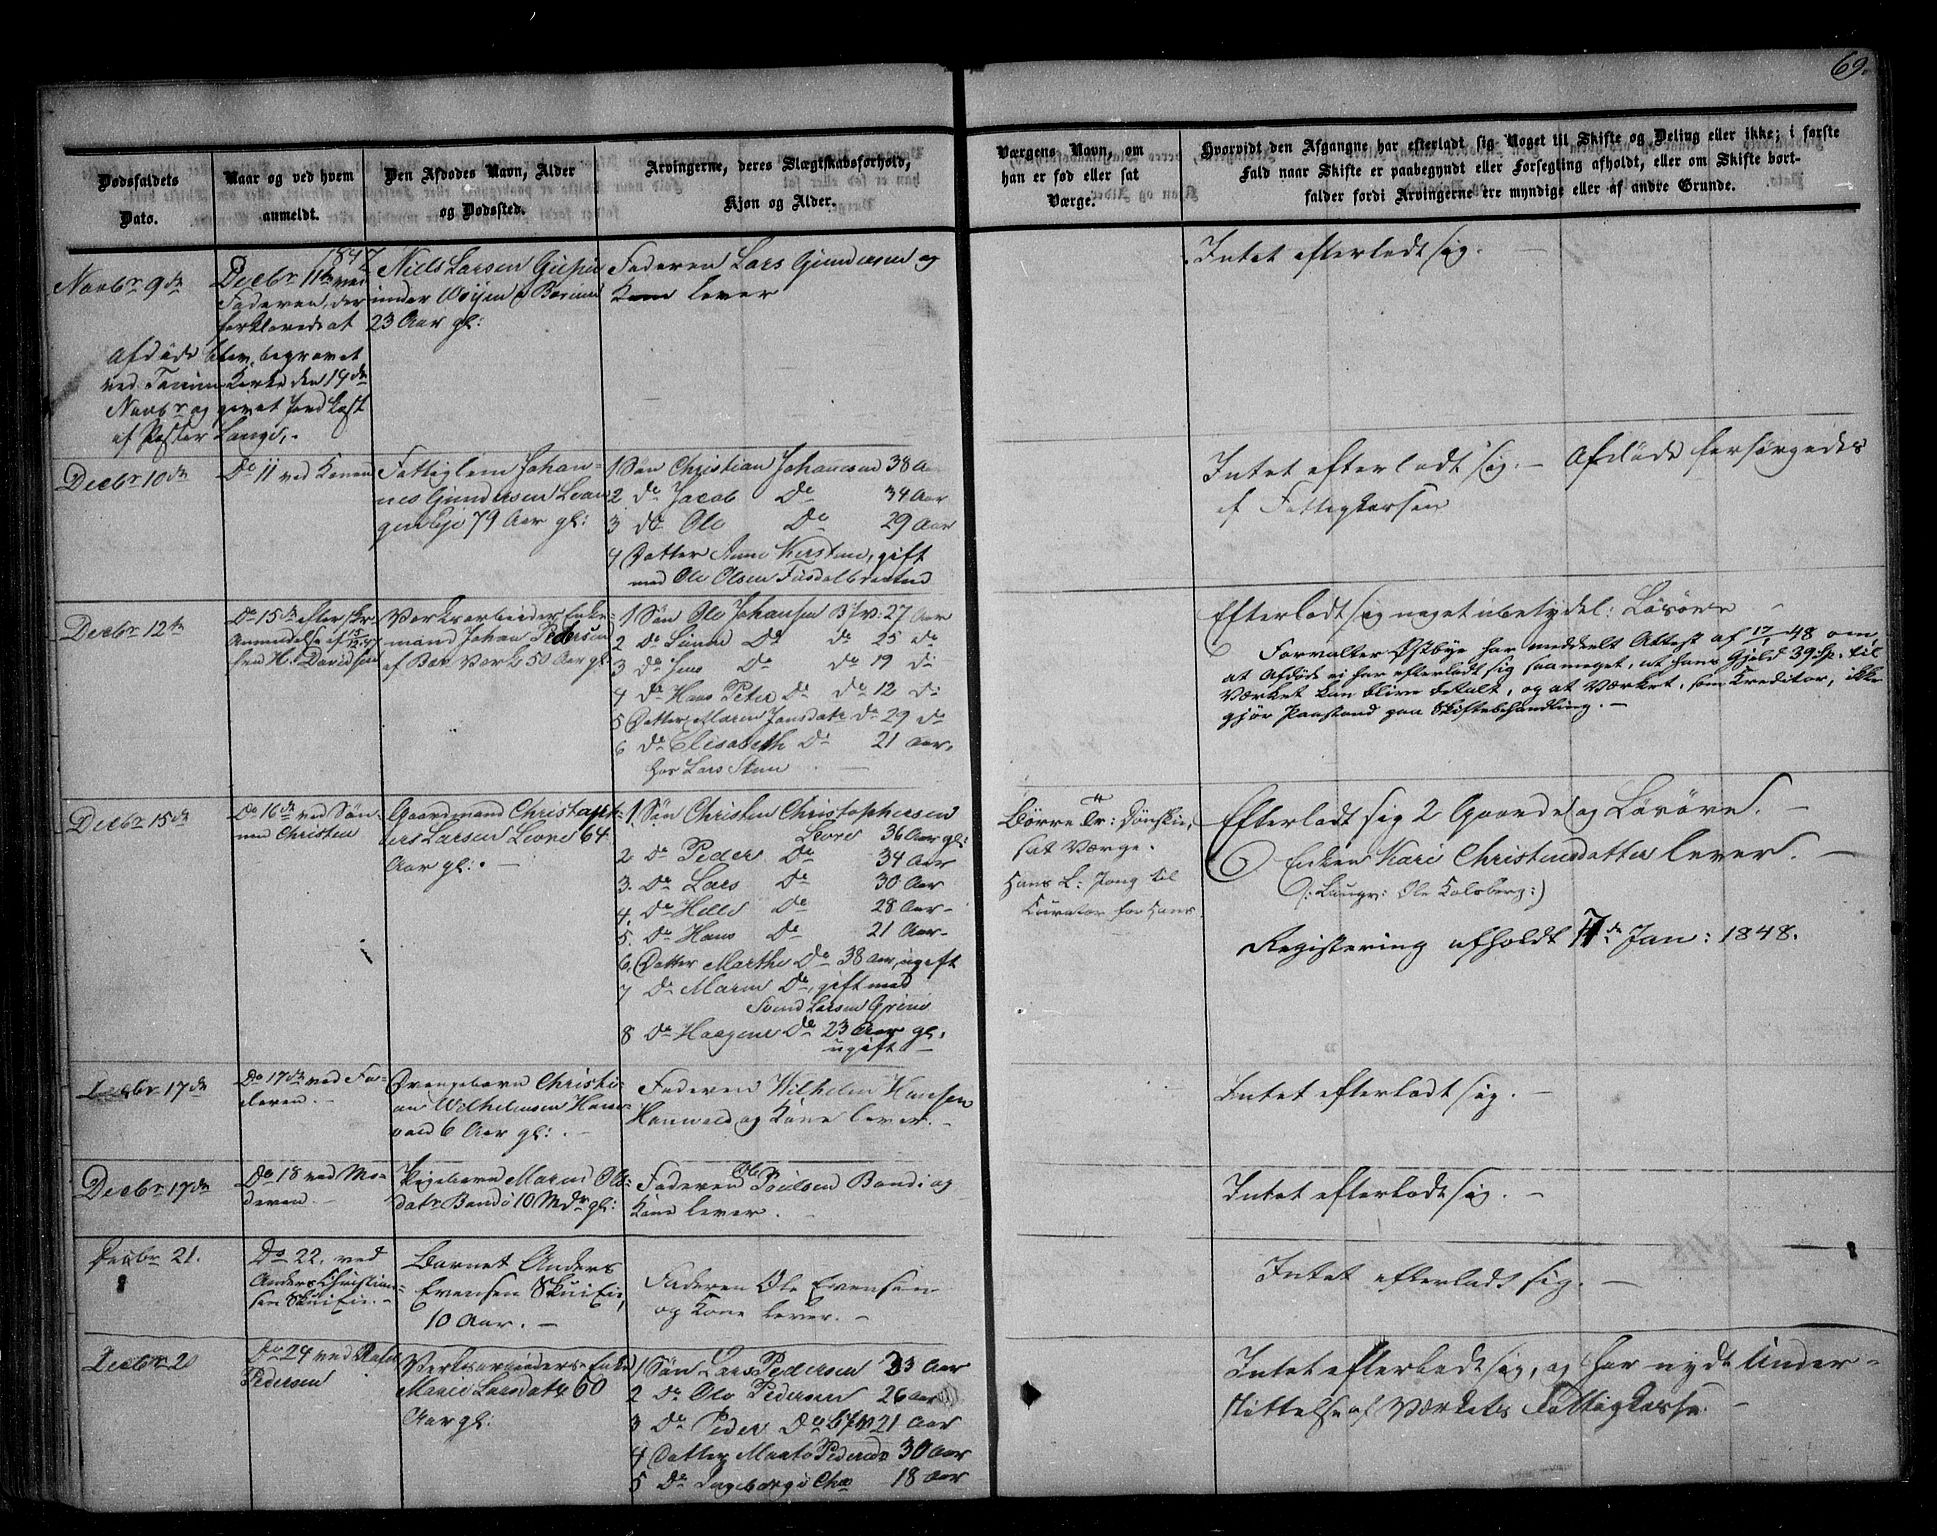 69.
Dødsfaldets
Dato.
Naar og ved hvem
anmeldt.
Den Afdødes Navn, Alder
og Dødssted.
Arvingerne, deres Slægtskabsforhold,
Kjøn og Alder.
Værgens Navn, om
han er fød eller sat
Værge.
Hvorvidt den Afgangne har efterladt sig Noget til Skifte og Deling eller ikke; i første
Fald naar Skifte er paabegyndt eller Forsegling afholdt, eller om Skifte bort-
falder fordi Arvingerne ere myndige eller af andre Grunde.
Novbr 9de
1847
Decbr 11te ved
Faderen, der
forklarede at
Afdøde blev begravet
ved Tanum Kirke den 19de
Novbr og givet Jordkast
af Pastor Lange.
Niels Larsen
under Vøyen i Bærum
23 Aar gl:
Faderen Lars Gundersen og
Kone lever
Intet efterladt sig. —
Decbr 10de
Do 11 ved Konen
Fattiglem Johan-
nes Gundersen
Eje 79 Aar gl:
1 Søn Christian Johannesen 38 Aar
2 do Jacob Do 34 Aar
3 do Ole Do 29 Aar
4 Datter Anne Kirstine, gift
med Ole Olsen
Intet efterladt sig. — Afdøde forsørgedes
af Fattigkassen
Decbr 12te
Do 15de efter skr:
Anmeldelse af 15/12 47
H. Davidsen
Værksarbeider Enke-
mand Johan Pedersen
af Bær. Værk 50 Aar gl:
1 Søn Ole Johansen B.V: 27 Aar
2 Do Do do 25 do
3 do Jens Do do 19 do
4 do Hans Peter Do do 12 do
5 Datter Maren Jansdatr do 29 do
6 do Elisabeth Do 21 Aar,
hos Lars
Efterladt sig noget ubetydel: Løsøre —
Forvalter Østbye har meddeelt Attest af 17/1 48 om,
at Afdøde ei har efterladt sig saameget, at hans Gjeld 39 Sp. til
Værket kan blive betalt, og at Værket, som Kreditor, ikke
gjør Paastand paa Skiftebehandling. —
Decbr 15de
Do 16de ved Søn-
nen Christen
Gaardmand Christoph-
ers Larsen Levre 64
Aar gl: —
1 Søn Christen Christophersen
Levre 36 Aar gl:
2 Do Peder Do 34 Aar
3. Do Lars Do 30 Aar
4. Do Do 28 Aar —
5. Do Hans Do 21 Aar —
6. Datter Marthe Do 38 Aar, ugift
7 Do Maren Do, gift med
Svend Larsen Grini
8 Do Do 23 Aar gl:
ugift —
Børre Tr: Dønskie,
sat Værge.
Hans L: Jong til
Curator for Hans.
Efterladt sig 2 Gaarde og Løsøre. —
Enken Kari Christensdatter lever. —
(: Laugv: Ole Kolsberg :)
Registering afholdt 7de Jan: 1848.
Decbr 17de
Do 17de ved Fa-
deren. —
Drengebarn Christi-
an Wilhelmsen
6 Aar gl: . —
Faderen Wilhelm Hansen
og Kone lever. —
Intet efterladt sig. —
Decbr 17de
Do 18 ved Mo-
deren. —
Pigebarn Maren Ols-
datr 10 Mdr gl:
Faderen Ole Poulsen og
Kone lever. —
Intet efterladt sig. —
Decbr 21.
Do 22. ved
Anders Christian-
sen Skui Eie. —
Barnet Anders
Evensen Skui Eie,
10 Aar. —
Faderen Ole Evensen
og Kone lever. —
Intet efterladt sig. —
Decbr 20
Do 24 ved
Pedersen
Værksarbeiders-Enke
Marie Larsdatr 60
Aar gl:
1 Søn Lars Pedersen 33 Aar
2 Do Ole Pedersen 26 Aar
3 Do Peder Do 21 Aar
4 Datter Marte Pedersd 30 Aar
5 Do Ingeborg 18 Aar
Intet efterladt sig, og har nydt Under-
støttelse af Værkets Fattigkasse. —